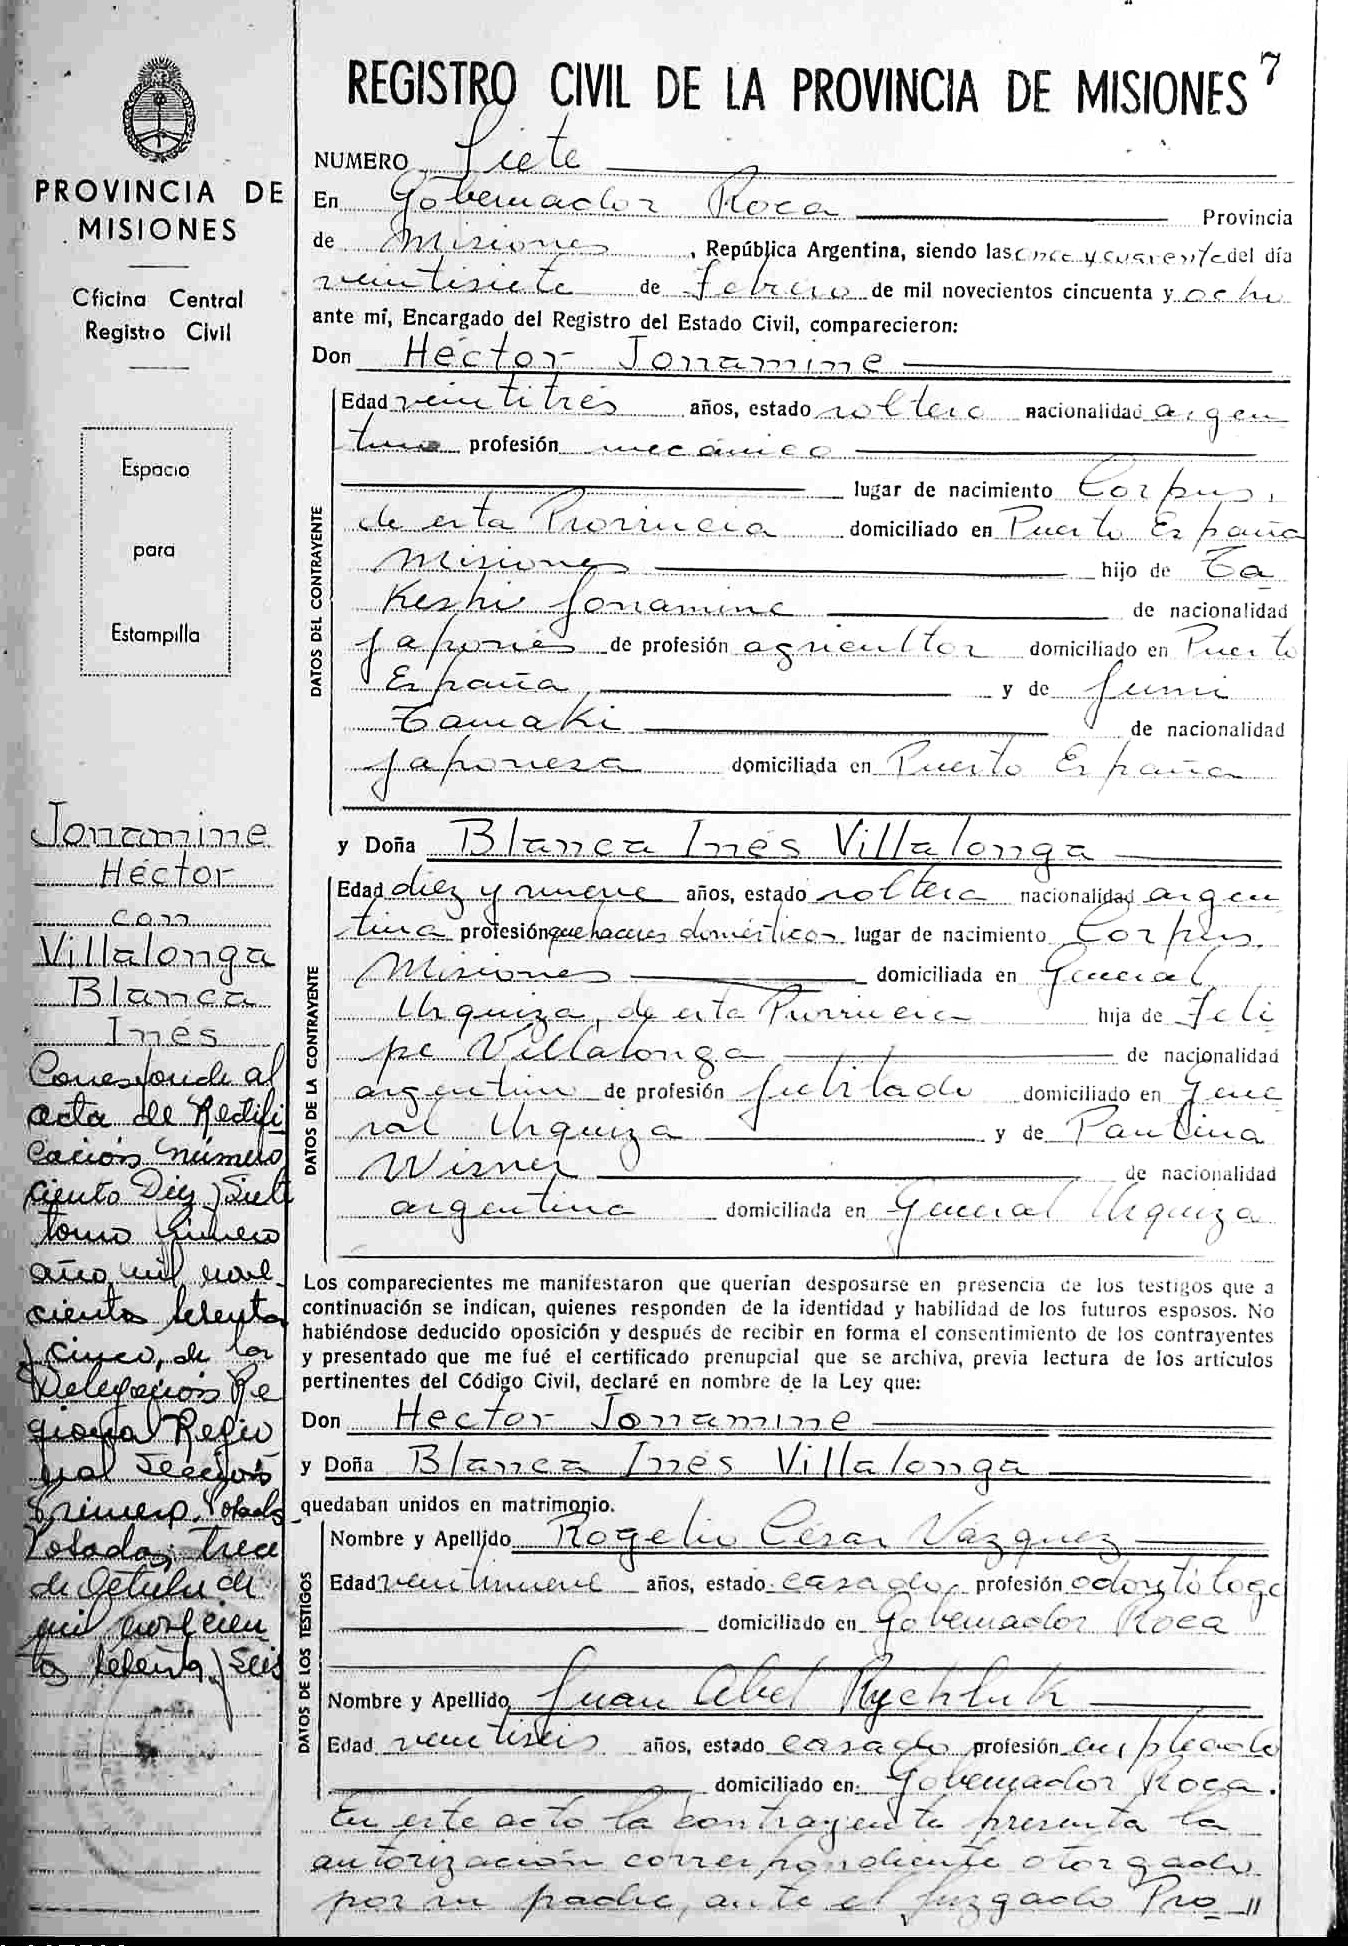 REGISTRO CIVIL DE LA PROVINCIA DE MISIONES 7
PROVINCIA DE
MISIONES
Oficina Central
Registro Civil
Espacio
para
Estampilla
Jonamine
Héctor
con
Villalonga
Blanca
Inés
Corresponde al
acta de Rectifi
cación número
ciento Diez y Siete
tomo primero
año mil nove
cientos setenta
y cinco, de la
Delegación Re
gional Regio
nal Sección
Primera, Posadas
Posadas, trece
de Octubre de
mil novecien
tos setenta y Seis
NUMERO Siete
En Gobernador Roca Provincia
de Misiones, República Argentina, siendo las once y cuarenta del día
veintisiete de Febrero de mil novecientos cincuenta y ocho
ante mí, Encargado del Registro del Estado Civil, comparecieron:
Don Héctor Jonamine
DATOS DEL CONTRAYENTE
Edad veintitrés años, estado soltero nacionalidad argen
tino profesión mecánico
lugar de nacimiento Corpus,
de esta Provincia domiciliado en Puerto España
Misiones hijo de Ta
Keshi Jonamine de nacionalidad
japonés de profesión agricultor domiciliado en Puerto
España, y de Jumi
Tamaki de nacionalidad
japonesa domiciliada en Puerto España
y Doña Blanca Inés Villalonga
DATOS DE LA CONTRAYENTE
Edad diez y nueve años, estado soltera nacionalidad argen
tina profesión quehaceres domésticos lugar de nacimiento Corpus.
Misiones domiciliada en General
Urquiza, de esta Provincia hija de Feli
pe Villalonga de nacionalidad
argentino de profesión jubilado domiciliado en Gene
ral Urquiza y de Paulina
Wisner de nacionalidad
argentina domiciliada en General Urquiza
Los comparecientes me manifestaron que querían desposarse en presencia de los testigos que a
continuación se indican, quienes responden de la identidad y habilidad de los futuros esposos. No
habiéndose deducido oposición y después de recibir en forma el consentimiento de los contrayentes
y presentado que me fué el certificado prenupcial que se archiva, previa lectura de los artículos
pertinentes del Código Civil, declaré en nombre de la Ley que:
Don Hector Jonamine
y Doña Blanca Inés Villalonga
quedaban unidos en matrimonio.
DATOS DE LOS TESTIGOS
Nombre y Apellido Rogelio César Vázquez
Edad veintinueve años, estado casado, profesión odontólogo
domiciliado en Gobernador Roca
Nombre y Apellido Juan Abel Rychluk
Edad veintiseis años, estado casado profesión empleado
domiciliado en Gobernador Roca.
En este acto la contrayente presenta la
autorización correspondiente otorgada
por su padre, ante el Juzgado Pro //